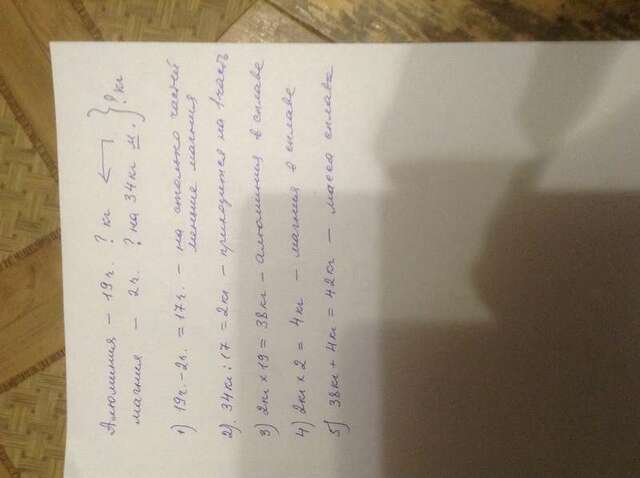 Алюминия – 19ч. ? кг
магния – 2ч. ? на 34кг м. } ? кг
1) 19ч. - 2ч. = 17ч. – на столько частей
меньше магния
2). 34кг : 17 = 2кг – приходится на 1 часть
3) 2кг × 19 = 38кг – алюминия в сплаве
4) 2кг × 2 = 4кг – магния в сплаве
5) 38кг + 4кг = 42кг – масса сплава